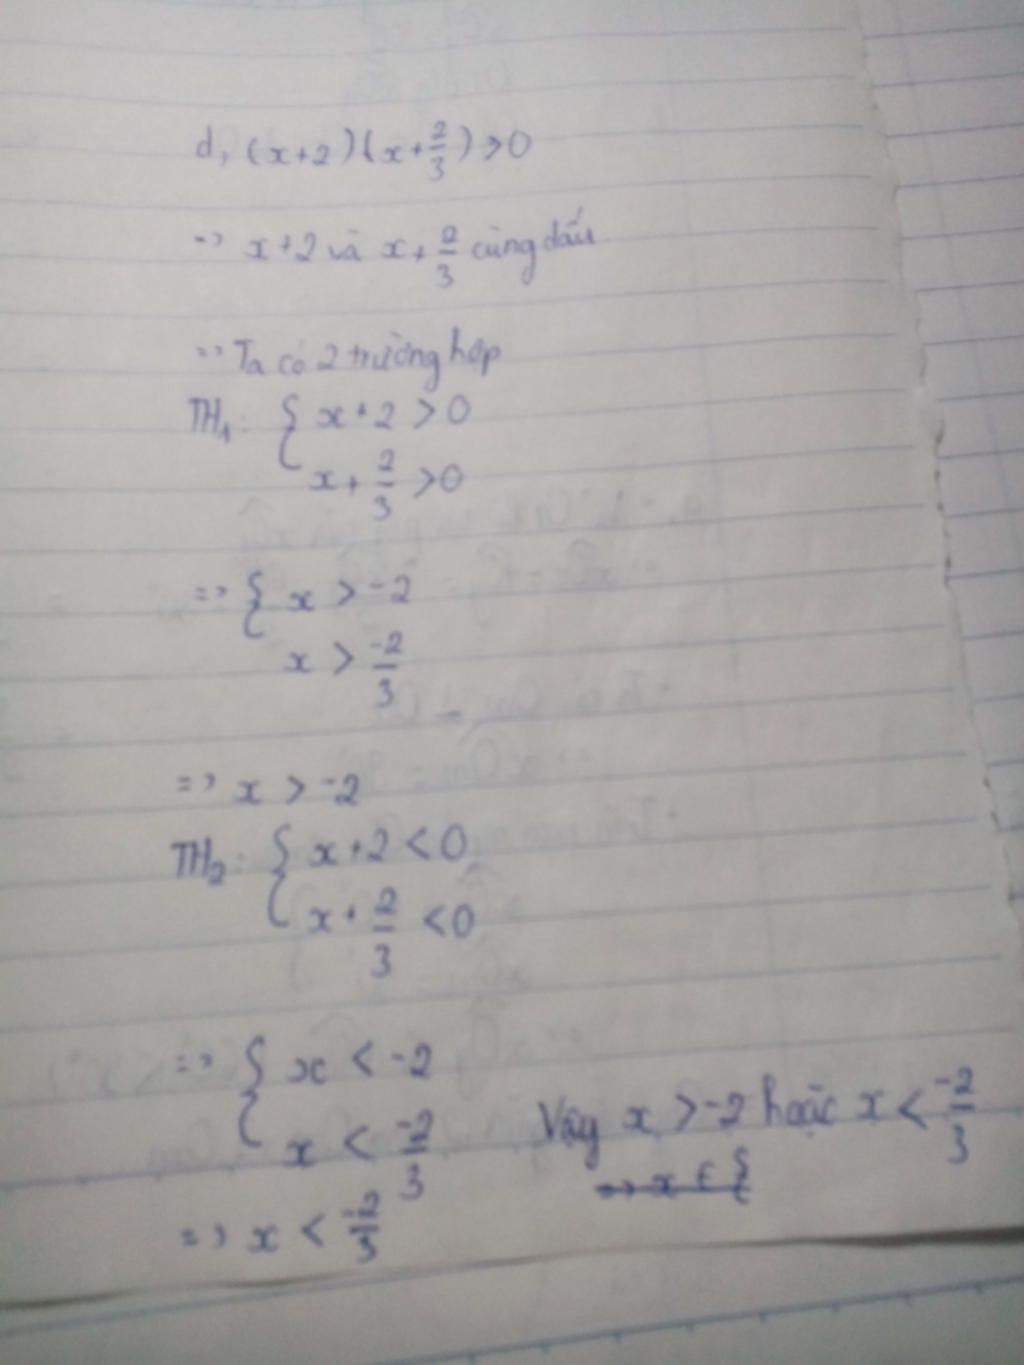 d, (x+2)(x+2/3)>0
=> x+2 và x+2/3 cùng dấu
=> Ta có 2 trường hợp
TH1: { x+2>0
x+2/3>0
=> { x>-2
x>-2/3
=> x>-2
TH2: { x+2<0
x+2/3<0
=> { x<-2
x<-2/3
=> x<-2/3
Vậy x>-2 hoặc x<-2/3
=> x ∈ {